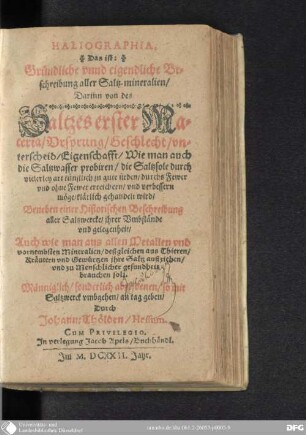 HALIOGRAPHIA,
Das ist:
Gründliche vnnd eigendliche Be-
schreibung aller Saltz-mineralien/
Darinn von des
Saltzes erster Ma-
teria/Vrsprung/Geschlecht/vn-
terscheid/Eigenschafft/Wie man auch
die Saltzwasser probiren/die Saltzsole durch
vielerley art künstlich zu gute sieden/durch Fewer
vnd ohne Fewer erreichern/vnd verbessern
möge/klärlich gehandelt wird/
Beneben einer Historischen Beschreibung
aller Saltzwercke/ihrer Vmbstände
vnd gelegenheit/
Auch wie man aus allen Metallen vnd
vornembsten Mineralien/deßgleichen aus Thieren/
Kräutern vnd Gewürtzen ihre Saltz ausziehen/
vnd zu Menschlicher gesundheit
brauchen soll.
Männiglich/sonderlich denen/so mit
Saltzwerck vmbgehen/an tag geben/
Durch
Johann: Thölden/Hessum.
CUM PRIVILEGIO.
In verlegung Jacob Apels/Buchhändl.
Im M. DCXXII. Jahr.
Universitäts- und
Landesbibliothek Düsseldorf